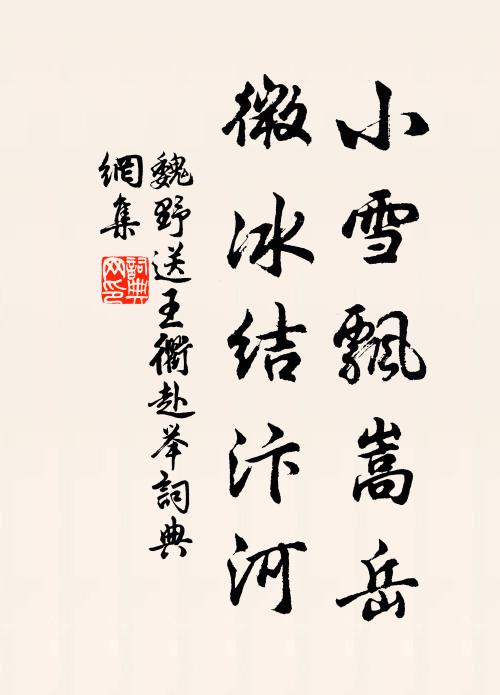 小雪飄嵩岳
微冰結汴河
魏野送王衢赴举詞典
網集
詞典
网印